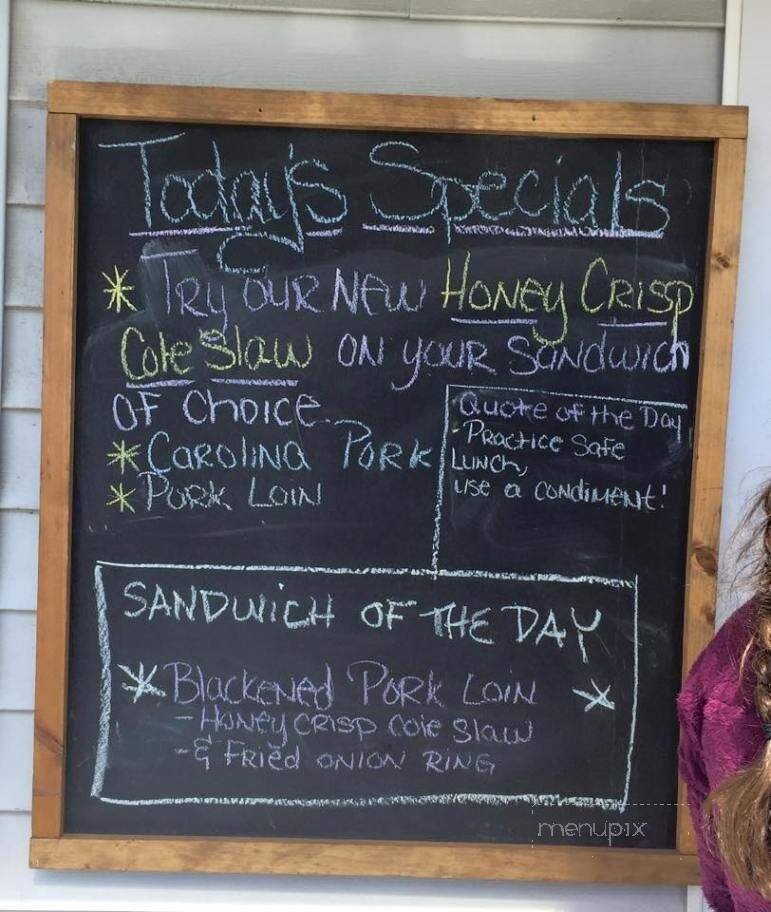 Today's Specials
* Try our new Honey Crisp
Cole Slaw on your sandwich
of choice.
* Carolina Pork
* Pork Loin
Quote of the Day
- Practice Safe
Lunch,
use a condiment!
SANDWICH OF THE DAY
* Blackened Pork Loin *
- Honey crisp cole slaw
- & Fried onion Ring
menupix